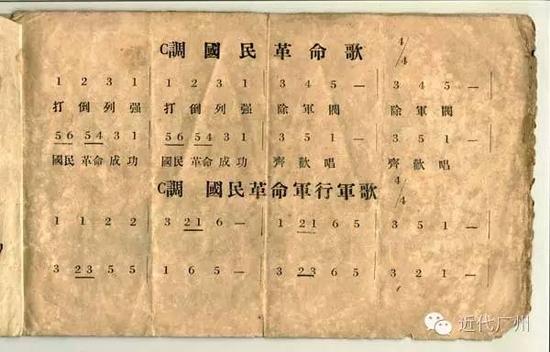 C調 國民革命歌 4/4
1 2 3 1 | 1 2 3 1 | 3 4 5 — | 3 4 5 —
打倒列强 打倒列强 除軍閥 除軍閥
56 54 3 1 | 56 54 3 1 | 3 5 1 — | 3 5 1 —
國民革命成功 國民革命成功 齊歡唱 齊歡唱
C調 國民革命軍行軍歌 4/4
1 1 2 2 | 3 21 6 — | 1 21 6 5 | 3 5 1 —
3 23 5 5 | 1 6 5 — | 3 23 6 5 | 3 2 1 —
近代广州